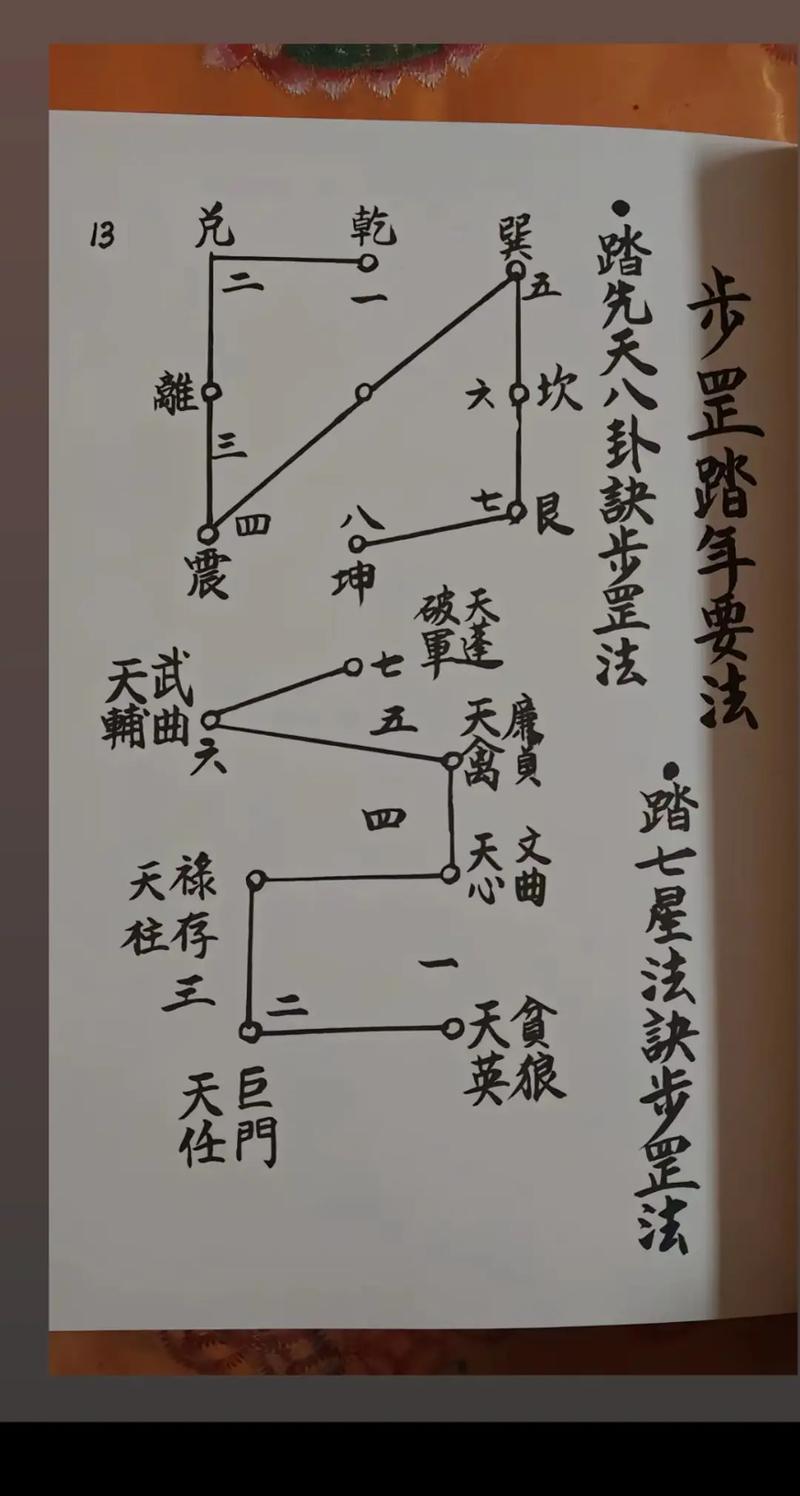 步罡踏年要法
●踏先天八卦訣步罡法
13
兑
乾
巽
二
一
五
離
六
坎
三
四
七
艮
震
八
坤
●踏七星法訣步罡法
天蓬
破軍
七
武曲
天輔
六
五
廉貞
天禽
四
文曲
天心
祿存
天柱
三
一
二
貧狼
天英
巨門
天任